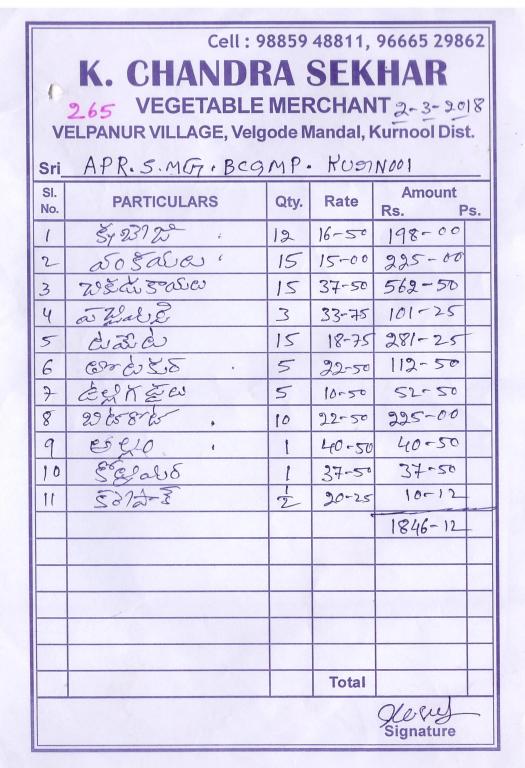 Cell : 98859 48811, 96665 29862
K. CHANDRA SEKHAR
265 VEGETABLE MERCHANT 2-3-2018
VELPANUR VILLAGE, Velgode Mandal, Kurnool Dist.
Sri APR.S.MG.BCGMP. KURNOOl
Sl. No. PARTICULARS Qty. Rate Amount Rs. Ps.
1 క్యాబేజి 12 16-50 198-00
2 వంకాయలు 15 15-00 225-00
3 చికుడుకాయలు 15 37-50 562-50
4 పచ్చిమిర్చి 3 33-75 101-25
5 టమేట 15 18-75 281-25
6 తోటకూర 5 22-50 112-50
7 ఉల్లిగడ్డలు 5 10-50 52-50
8 బీటరోట 10 22-50 225-00
9 అల్లం 1 40-50 40-50
10 కొత్తిమీర 1 37-50 37-50
11 కరేపాక్ 1/2 20-25 10-12
1846-12
Total
Signature